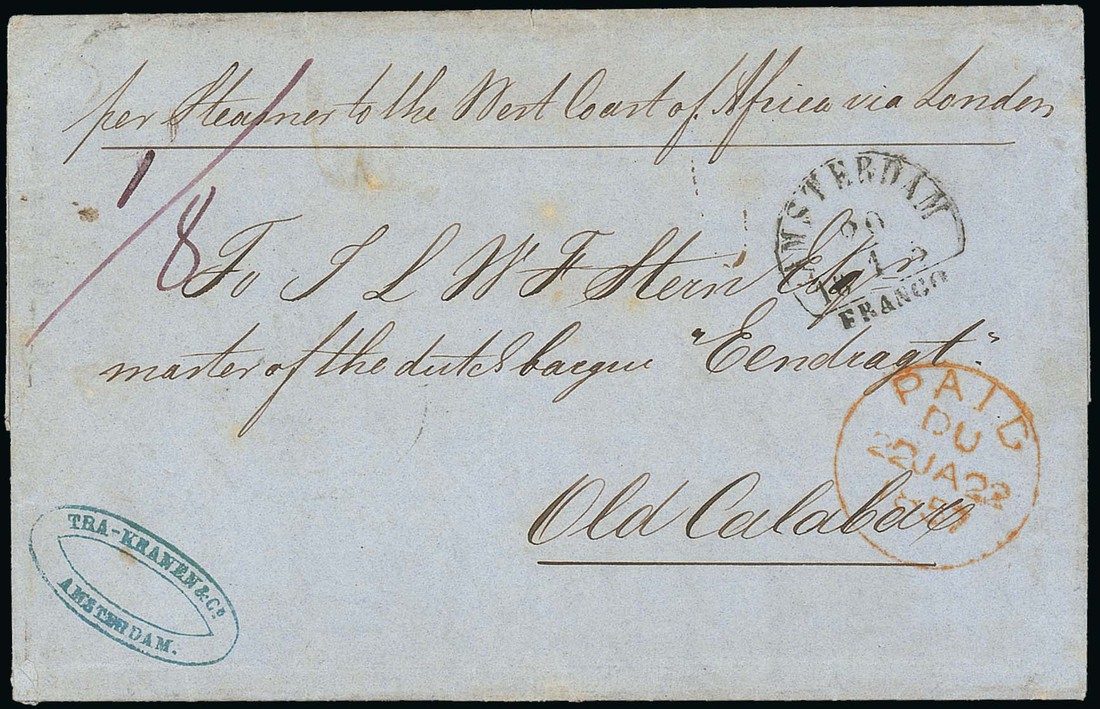 per Steamer to the West Coast of Africa via London
1/8
AMSTERDAM
20
1
FRANCO
To J L W F Stern Esqr
master of the dutch barque "Eendragt"
PAID
DU
22JA22
1857
Old Calabar
TRA-KRANEN & Co
AMSTERDAM.